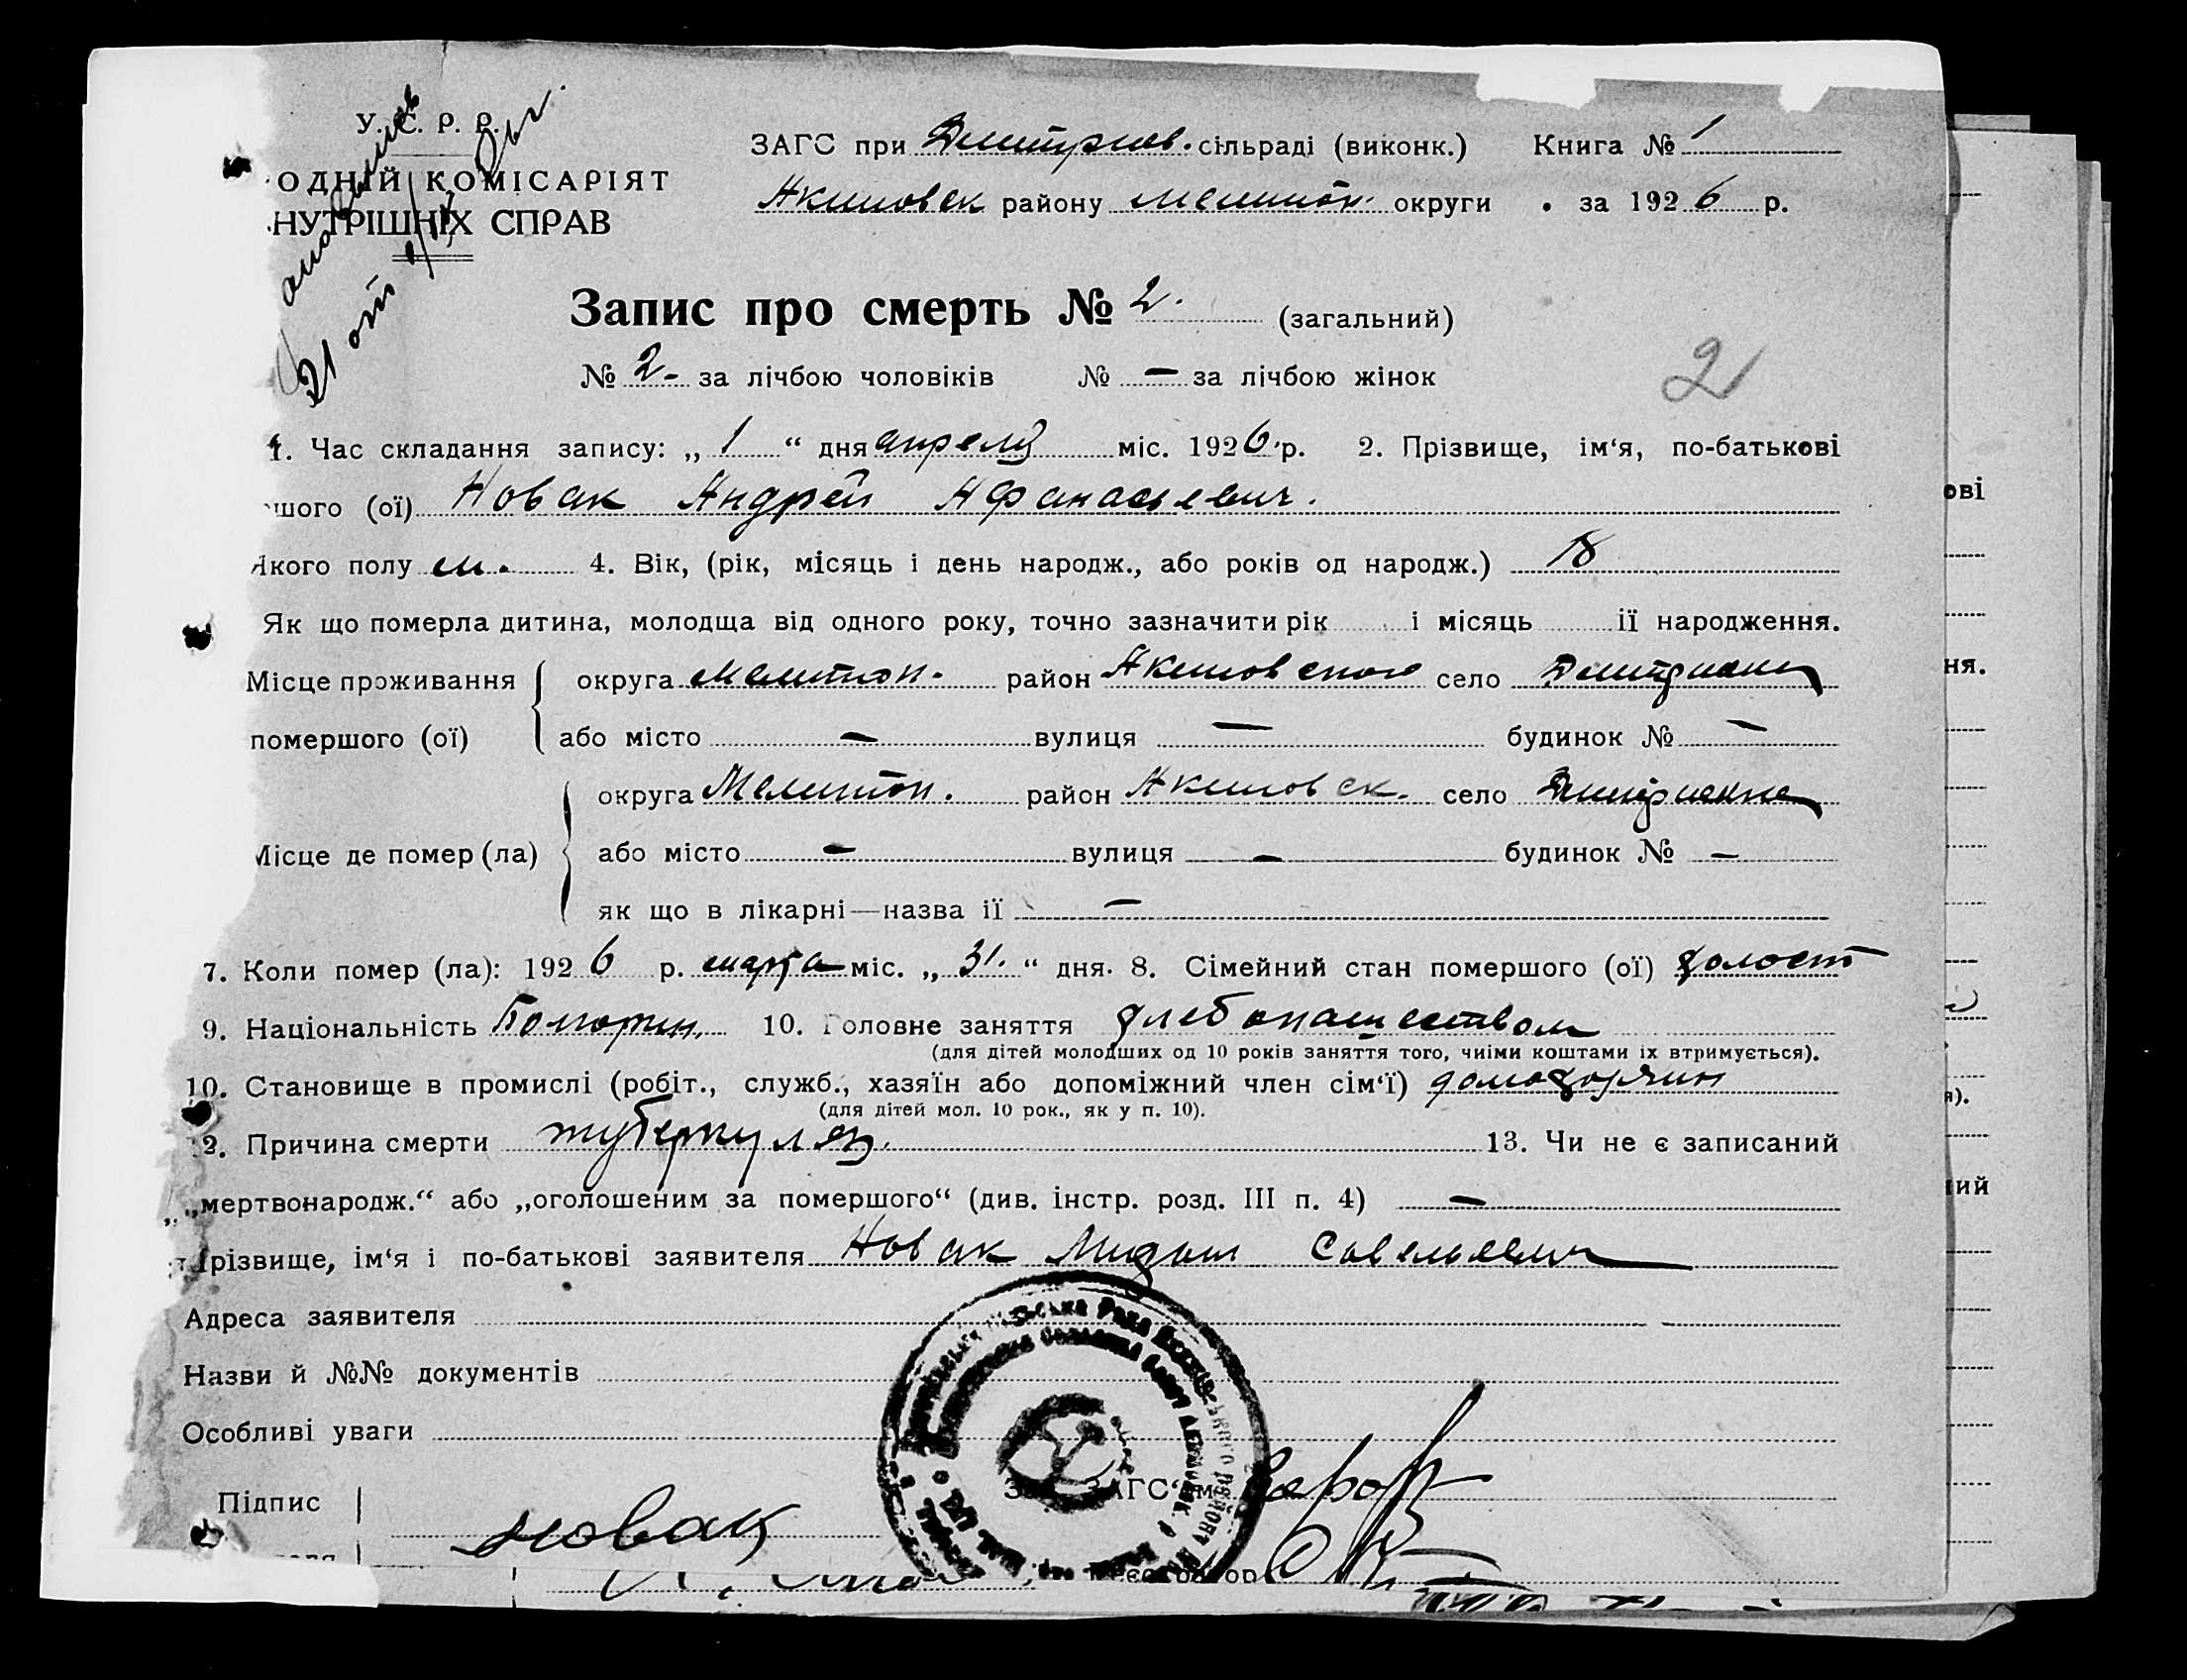 У. С. Р. Р.
ОДНІЙ КОМІСАРІЯТ
НУТРІШНІХ СПРАВ
21 от
ЗАГС при Дмитриев. сільраді (виконк.) Книга № 1
Акимовск району Мелитоп. округи за 1926 р.
Запис про смерть № 2. (загальний)
№ 2- за лічбою чоловіків № — за лічбою жінок
2
1. Час складання запису: „ 1 “ дня апреля міс. 1926 р. 2. Прізвище, ім‘я, по-батькові
шого (ої) Новак Андрей Афанасьевич.
якого полу м. 4. Вік, (рік, місяць і день народж., або років од народж.) 18
Як що померла дитина, молодща від одного року, точно зазначити рік і місяць її народження.
Місце проживання округа Мелитоп. район Акимовского село
помершого (ої) або місто — вулиця — будинок № —
округа Мелитоп. район Акимовск. село
Місце де помер (ла) або місто — вулиця — будинок № —
як що в лікарні—назва її —
7. Коли помер (ла): 1926 р. марта міс. „ 31. “ дня. 8. Сімейний стан помершого (ої) холост
9. Національність 10. Головне заняття хлебопашеством
(для дітей молодших од 10 років заняття того, чиїми коштами їх втримується).
10. Становище в промислі (робіт., служб., хазяїн або допоміжний член сім‘ї) домохозяин
(для дітей мол. 10 рок., як у п. 10).
2. Причина смерти туберкулез. 13. Чи не є записаний
„мертвонародж.“ або „оголошеним за помершого“ (див. інстр. розд. III п. 4) —
прізвище, ім‘я і по-батькові заявителя Новак Савельевич
Адреса заявителя
Назви й №№ документів
Особливі уваги
Підпис Новак ЗАГС‘ом